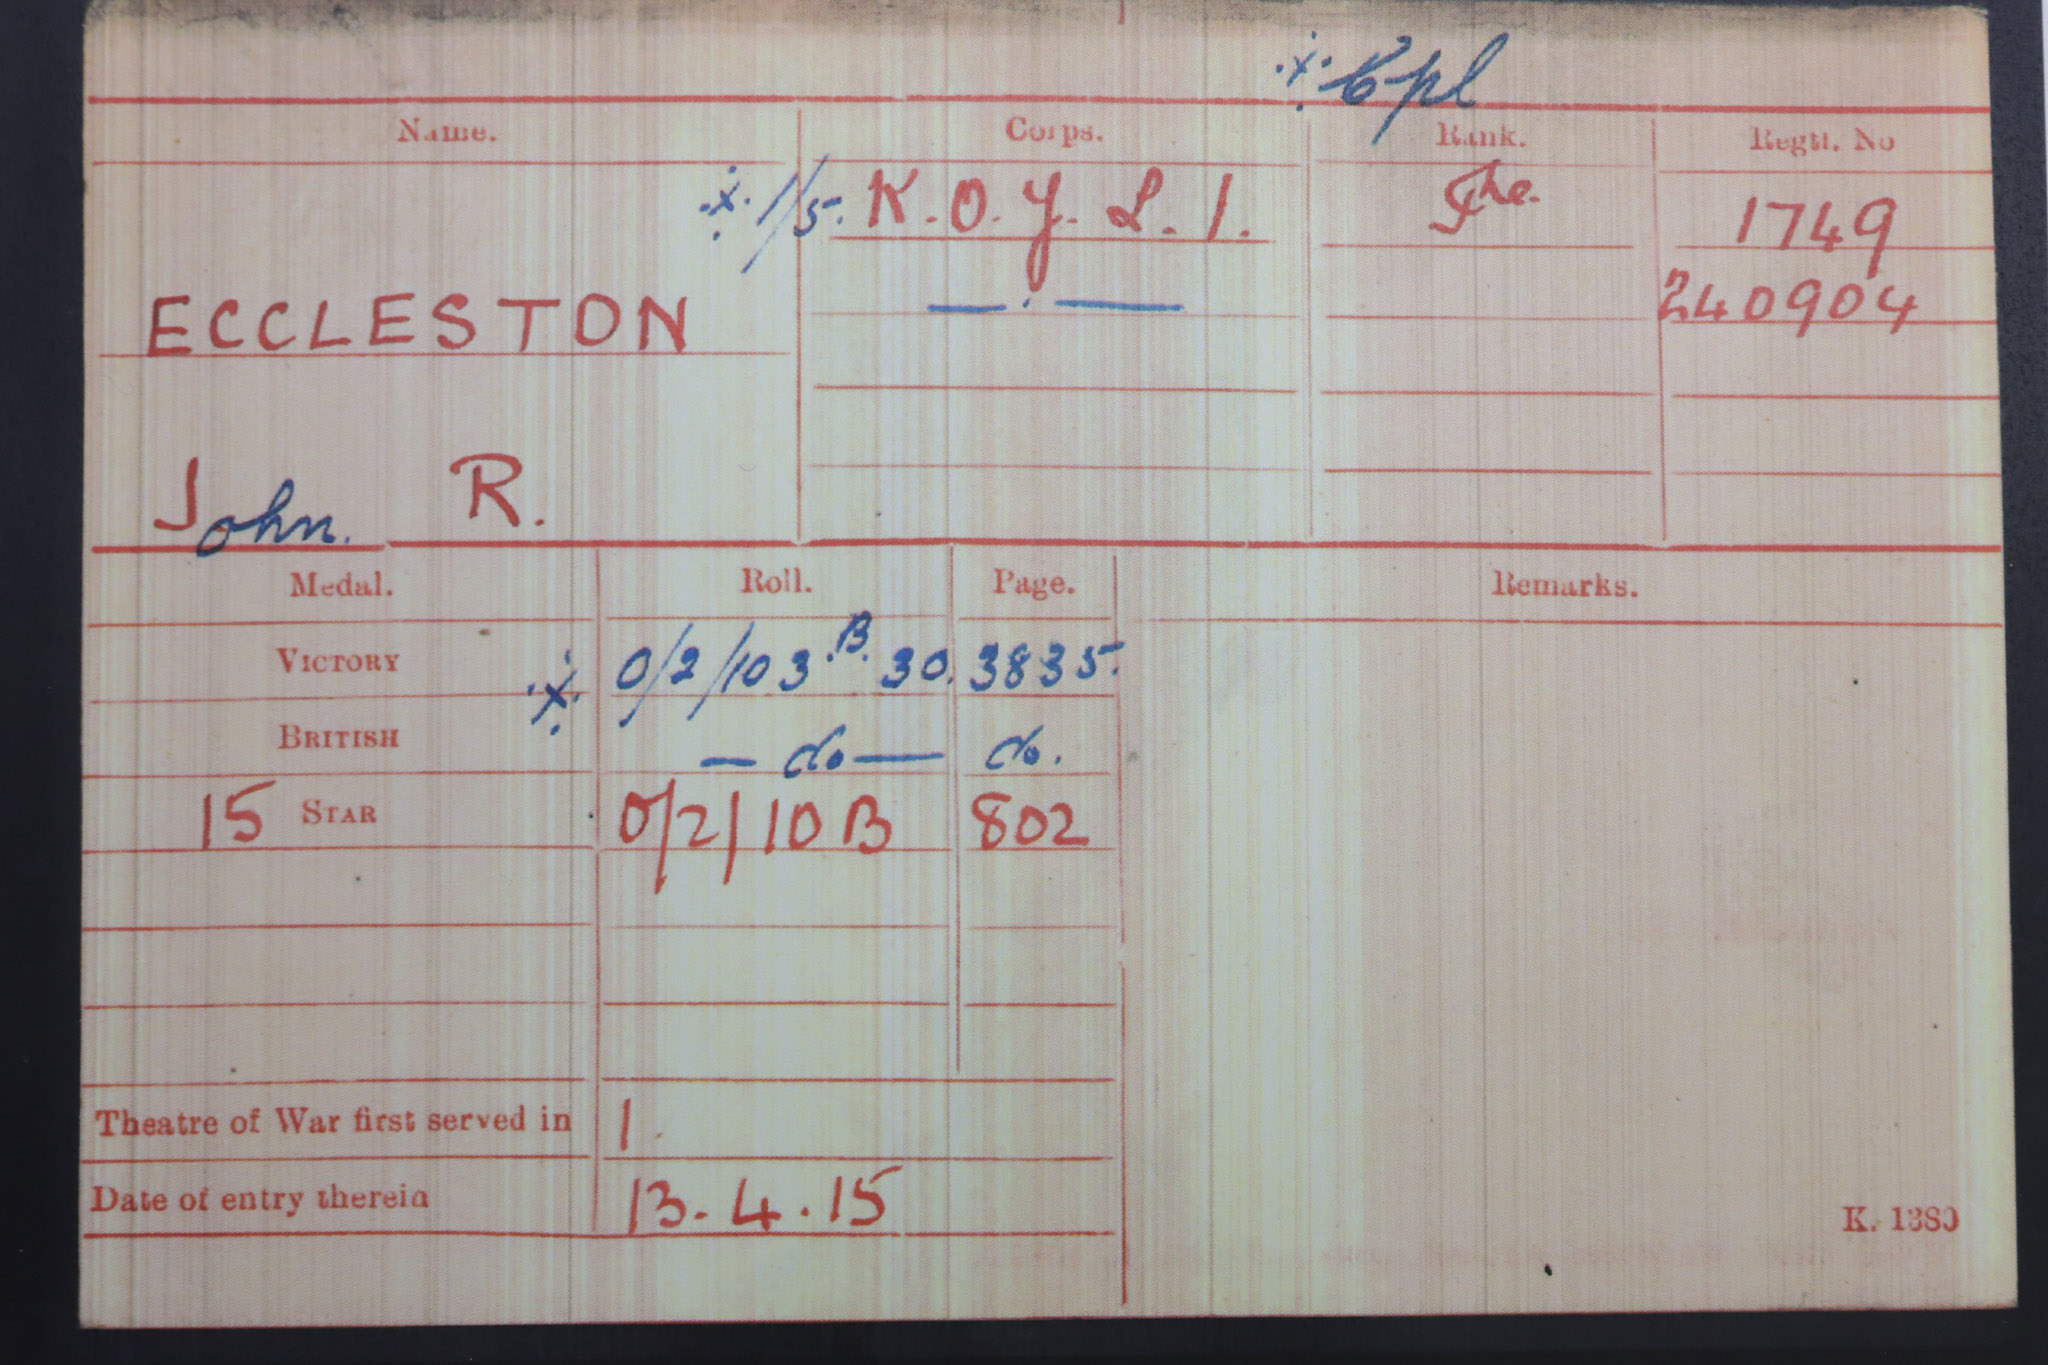 Cpl
Name. Corps. Rank. Regtl. No
1/5. K. O. Y. L. I. Pte. 1749
240904
ECCLESTON
John. R.
Medal. Roll. Page. Remarks.
VICTORY 0/2/103.B.30. 3835.
BRITISH — do — do.
15 STAR 0/2/10B 802
Theatre of War first served in 1.
Date of entry therein 13.4.15
K. 1380